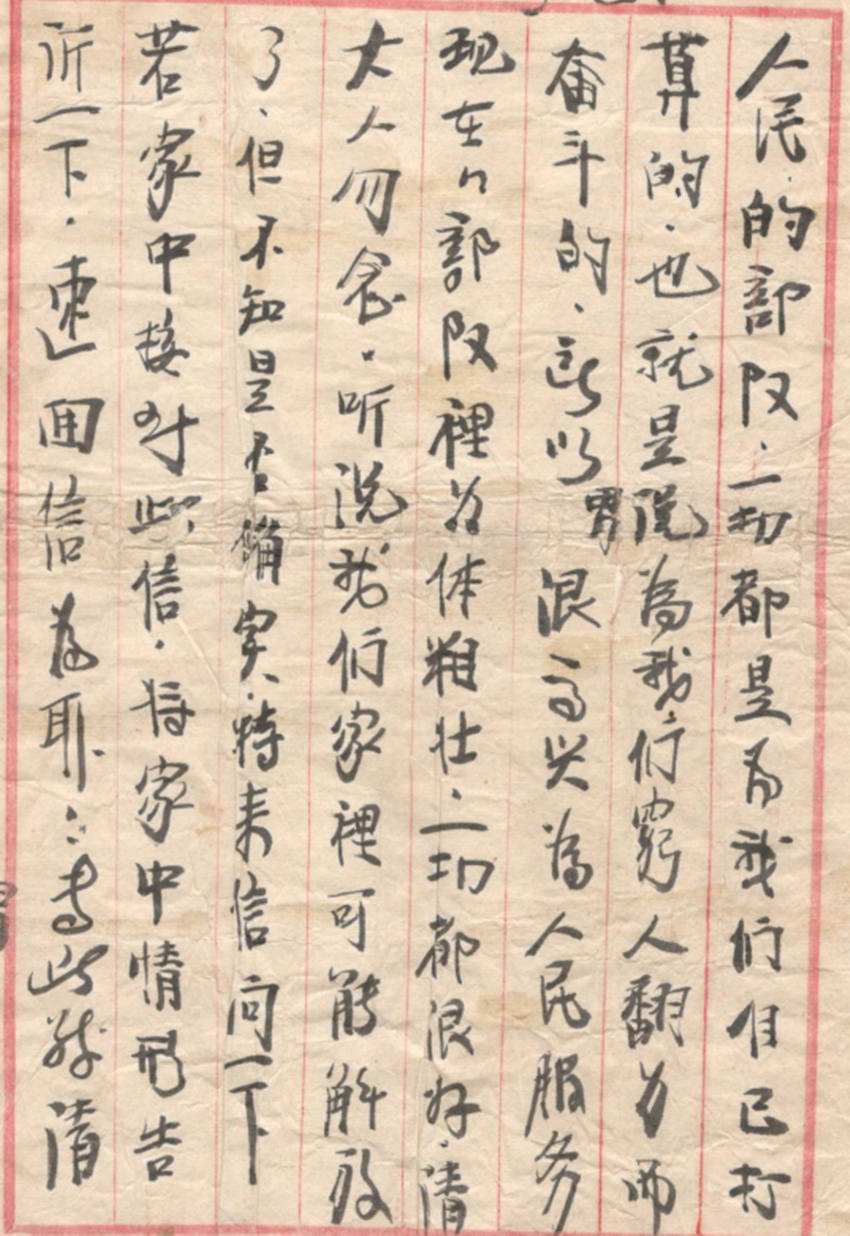 人民的部队、一切都是为我们自己打
算的、也就是说為我们窮人翻身而
奋斗的、所以男很高兴為人民服务
现在ㄇ部队裡身体粗壮、一切都很好、请
大人勿念。听说我们家裡可能解放
了、但不知是否确实、特来信问一下
若家中接到此信、将家中情形告
诉一下、速回信為耶、、专此敬请